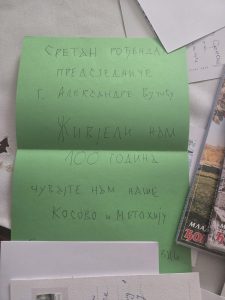 СРЕТАН РОЂЕНДАН
ПРЕДСЕДНИЧЕ
Г. АЛЕКСАНДРЕ ВУЧИЋУ
ЖИВЈЕЛИ НАМ
100 ГОДИНА
ЧУВАЈТЕ НАМ НАШЕ
КОСОВО И МЕТОХИЈУ